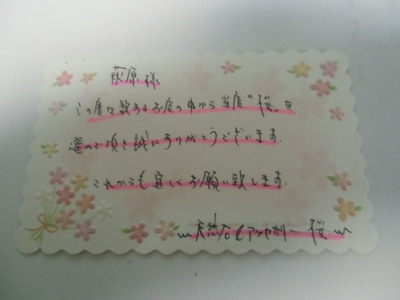 荻原様
この度は数あるお店の中から当店“桜”を
選んで頂き誠にありがとうございます。
これからも宜しくお願い致します。
〜天然石&アクセサリー桜〜